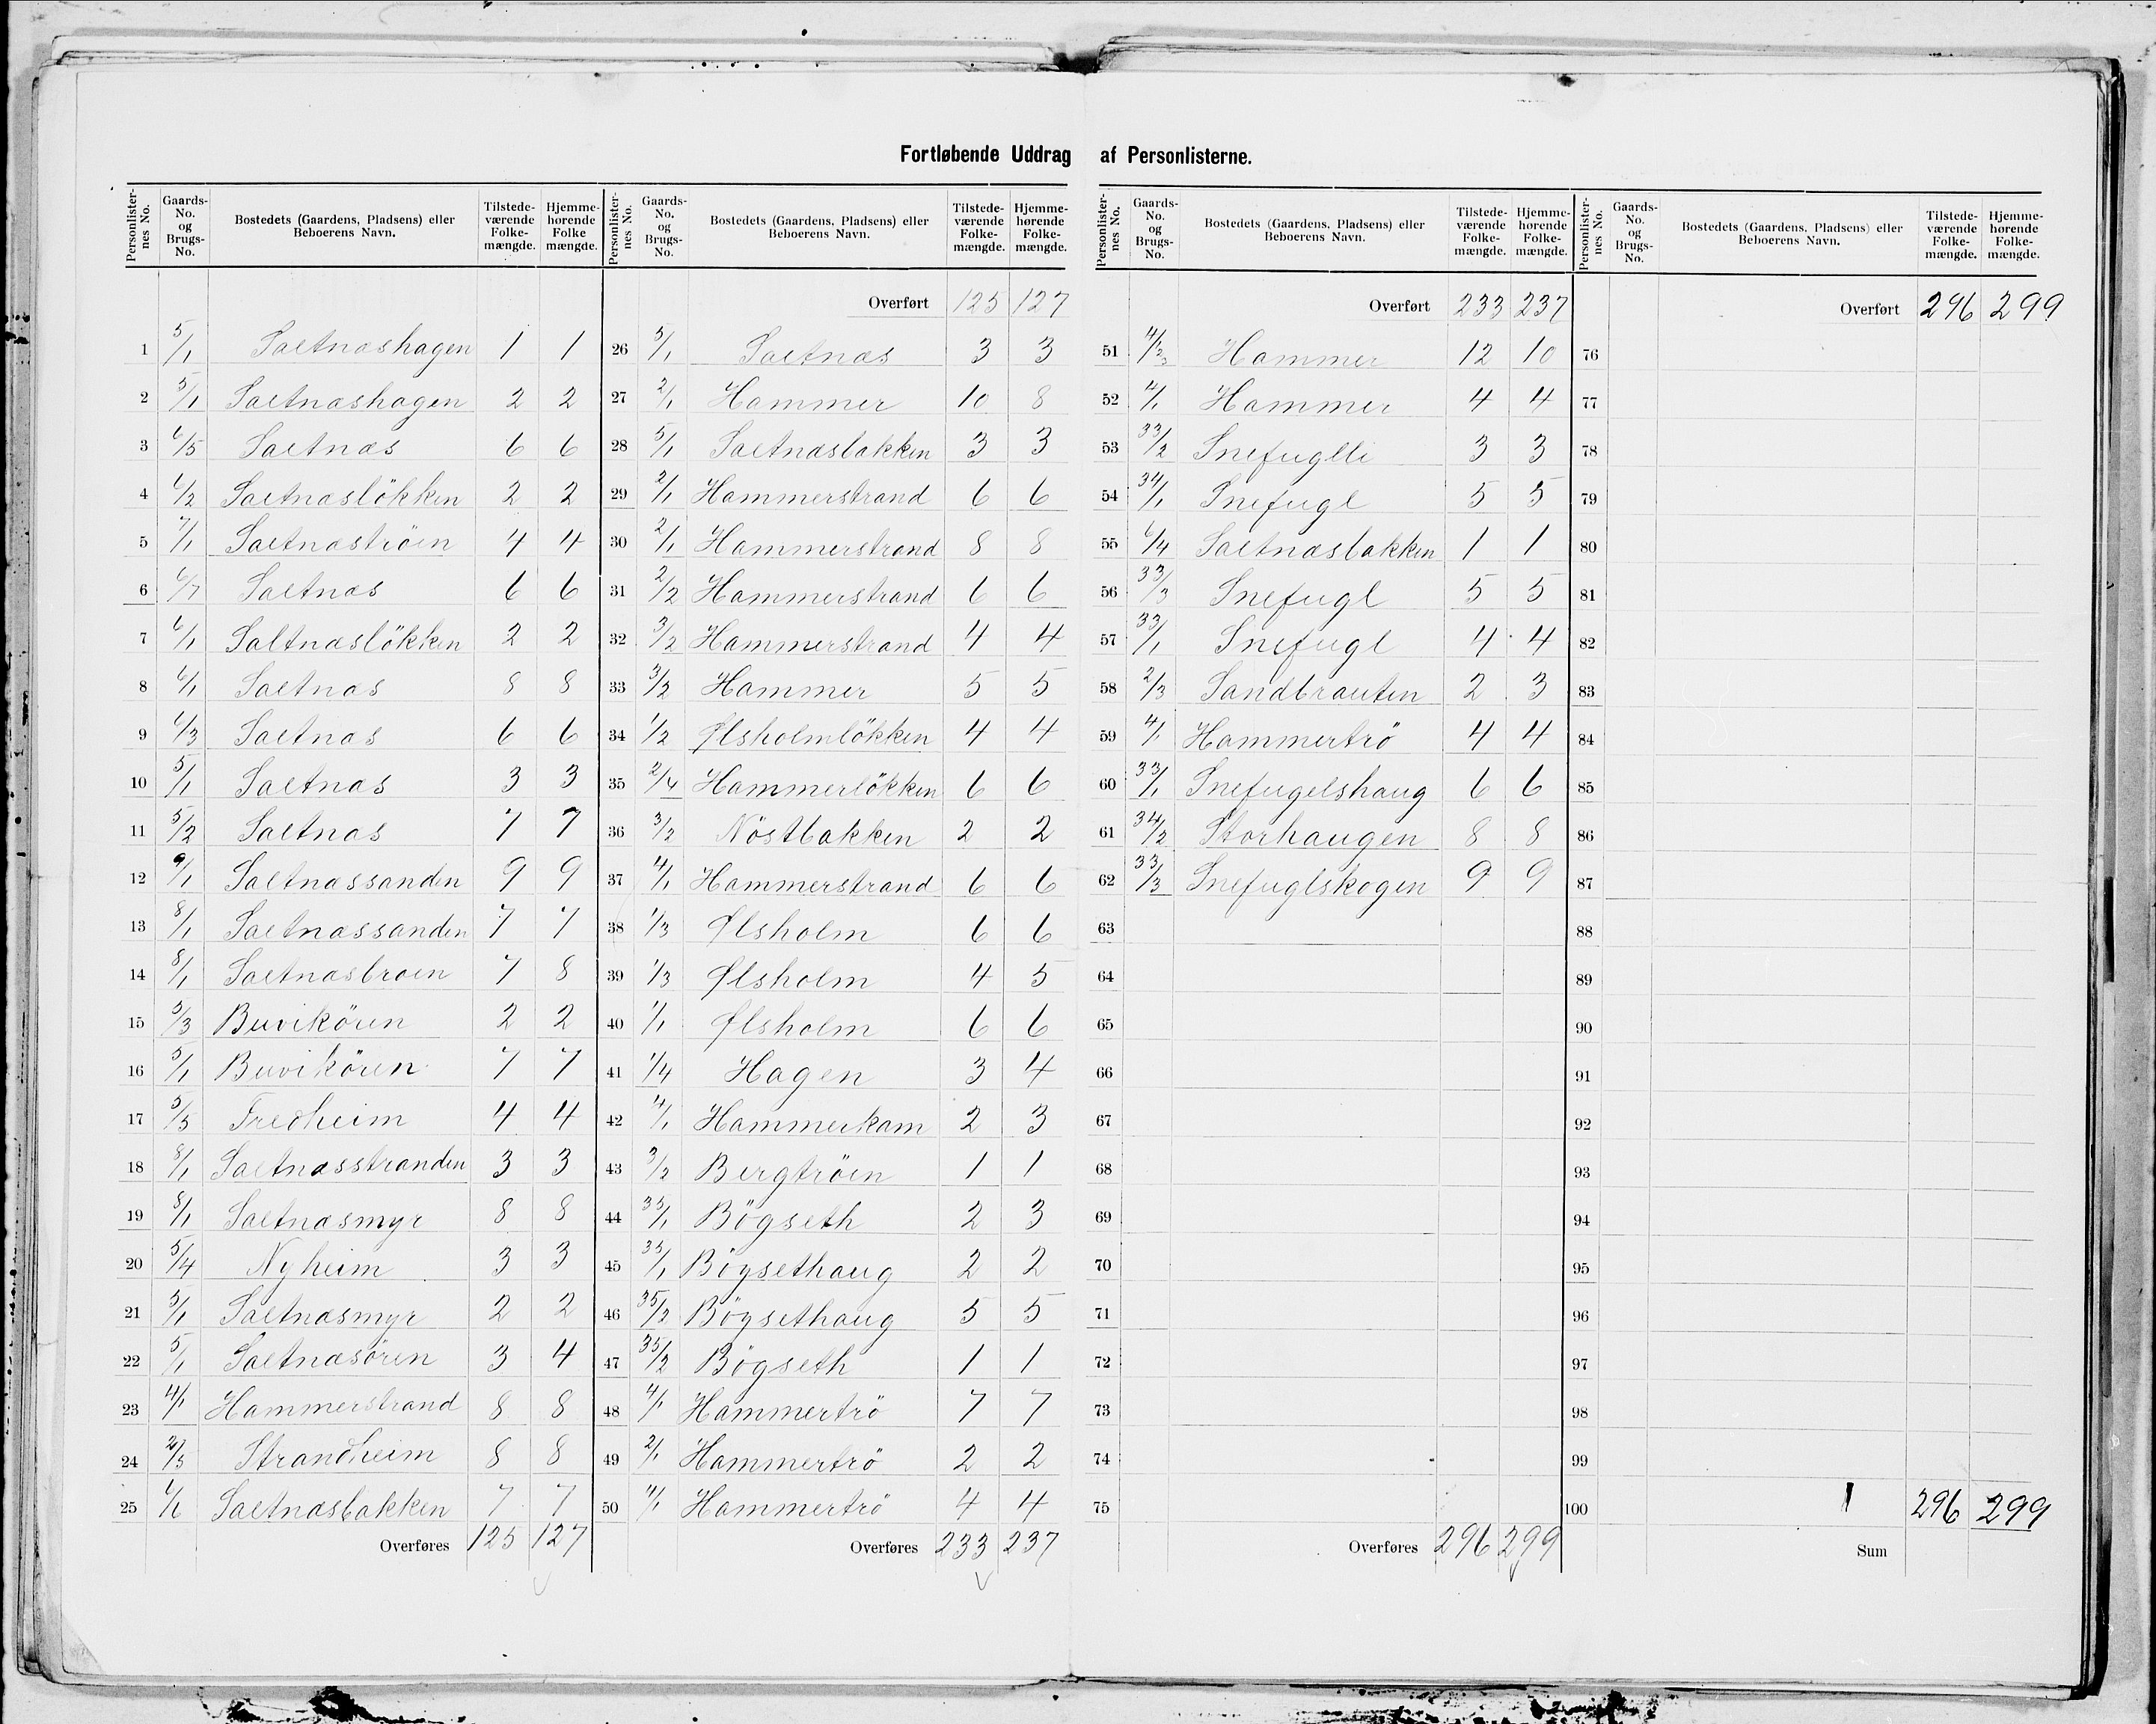 Fortløbende Uddrag af Personlisterne.
Personlister-nes No. Gaards-No. og Brugs-No. Bostedets (Gaardens, Pladsens) eller Beboerens Navn. Tilstede-værende Folke-mængde. Hjemme-hørende Folke mængde.
1 5/1 Saltnæshagen 1 1
2 5/1 Saltnæshagen 2 2
3 6/5 Saltnæs 6 6
4 6/2 Saltnæsløkken 2 2
5 7/1 Saltnæstrøen 4 4
6 6/7 Saltnæs 6 6
7 6/1 Saltnæsløkken 2 2
8 6/1 Saltnæs 8 8
9 6/3 Saltnæs 6 6
10 5/1 Saltnæs 3 3
11 5/2 Saltnæs 7 7
12 9/1 Saltnæssanden 9 9
13 8/1 Saltnæssanden 7 7
14 8/1 Saltnæsbroen 7 8
15 5/3 Buvikören 2 2
16 5/1 Buvikören 7 7
17 5/5 Fredheim 4 4
18 8/1 Saltnæsstranden 3 3
19 8/1 Saltnæsmyr 8 8
20 5/4 Nyheim 3 3
21 5/1 Saltnæsmyr 2 2
22 5/1 Saltnæsøren 3 4
23 4/1 Hammerstrand 8 8
24 2/5 Strandheim 8 8
25 6/6 Saltnæsbakken 7 7
Overføres 125 127
Personlister-nes No. Gaards-No. og Brugs-No. Bostedets (Gaardens, Pladsens) eller Beboerens Navn. Tilstede-værende Folke-mængde. Hjemme-hørende Folke-mængde.
Overført 125 127
26 5/1 Saltnæs 3 3
27 2/1 Hammer 10 8
28 5/1 Saltnæsbakken 3 3
29 2/1 Hammerstrand 6 6
30 2/1 Hammerstrand 8 8
31 2/2 Hammerstrand 6 6
32 3/2 Hammerstrand 4 4
33 3/2 Hammer 5 5
34 1/2 Ølsholmløkken 4 4
35 2/4 Hammerløkken 6 6
36 3/2 Nöstbakken 2 2
37 4/1 Hammerstrand 6 6
38 1/3 Ølsholm 6 6
39 1/3 Ølsholm 4 5
40 1/1 Ølsholm 6 6
41 1/4 Hagen 3 4
42 4/1 Hammerkam 2 3
43 3/2 Bergtröen 1 1
44 35/1 Bögseth 2 3
45 35/1 Bögsethaug 2 2
46 35/2 Bögsethaug 5 5
47 35/2 Bögseth 1 1
48 4/1 Hammertrö 7 7
49 2/1 Hammertrö 2 2
50 4/1 Hammertrö 4 4
Overføres 233 237
Personlister-nes No. Gaards-No. og Brugs-No. Bostedets (Gaardens, Pladsens) eller Beboerens Navn. Tilstede-værende Folke-mængde. Hjemme-hørende Folke-mængde.
Overført 233 237
51 4/2 3 Hammer 12 10
52 4/1 Hammer 4 4
53 33/2 Snefuglli 3 3
54 34/1 Snefugl 5 5
55 6/4 Saltnæsbakken 1 1
56 33/3 Snefugl 5 5
57 33/1 Snefugl 4 4
58 2/3 Sandbrauten 2 3
59 4/1 Hammertrö 4 4
60 33/1 Snefugelshaug 6 6
61 34/2 Storhaugen 8 8
62 33/3 Snefuglskogen 9 9
63
64
65
66
67
68
69
70
71
72
73
74
75
Overføres 296 299
Personlister-nes No. Gaards-No. og Brugs-No. Bostedets (Gaardens, Pladsens) eller Beboerens Navn. Tilstede-værende Folke-mængde. Hjemme-hørende Folke-mængde.
Overført 296 299
76
77
78
79
80
81
82
83
84
85
86
87
88
89
90
91
92
93
94
95
96
97
98
99
100 296 299
Sum